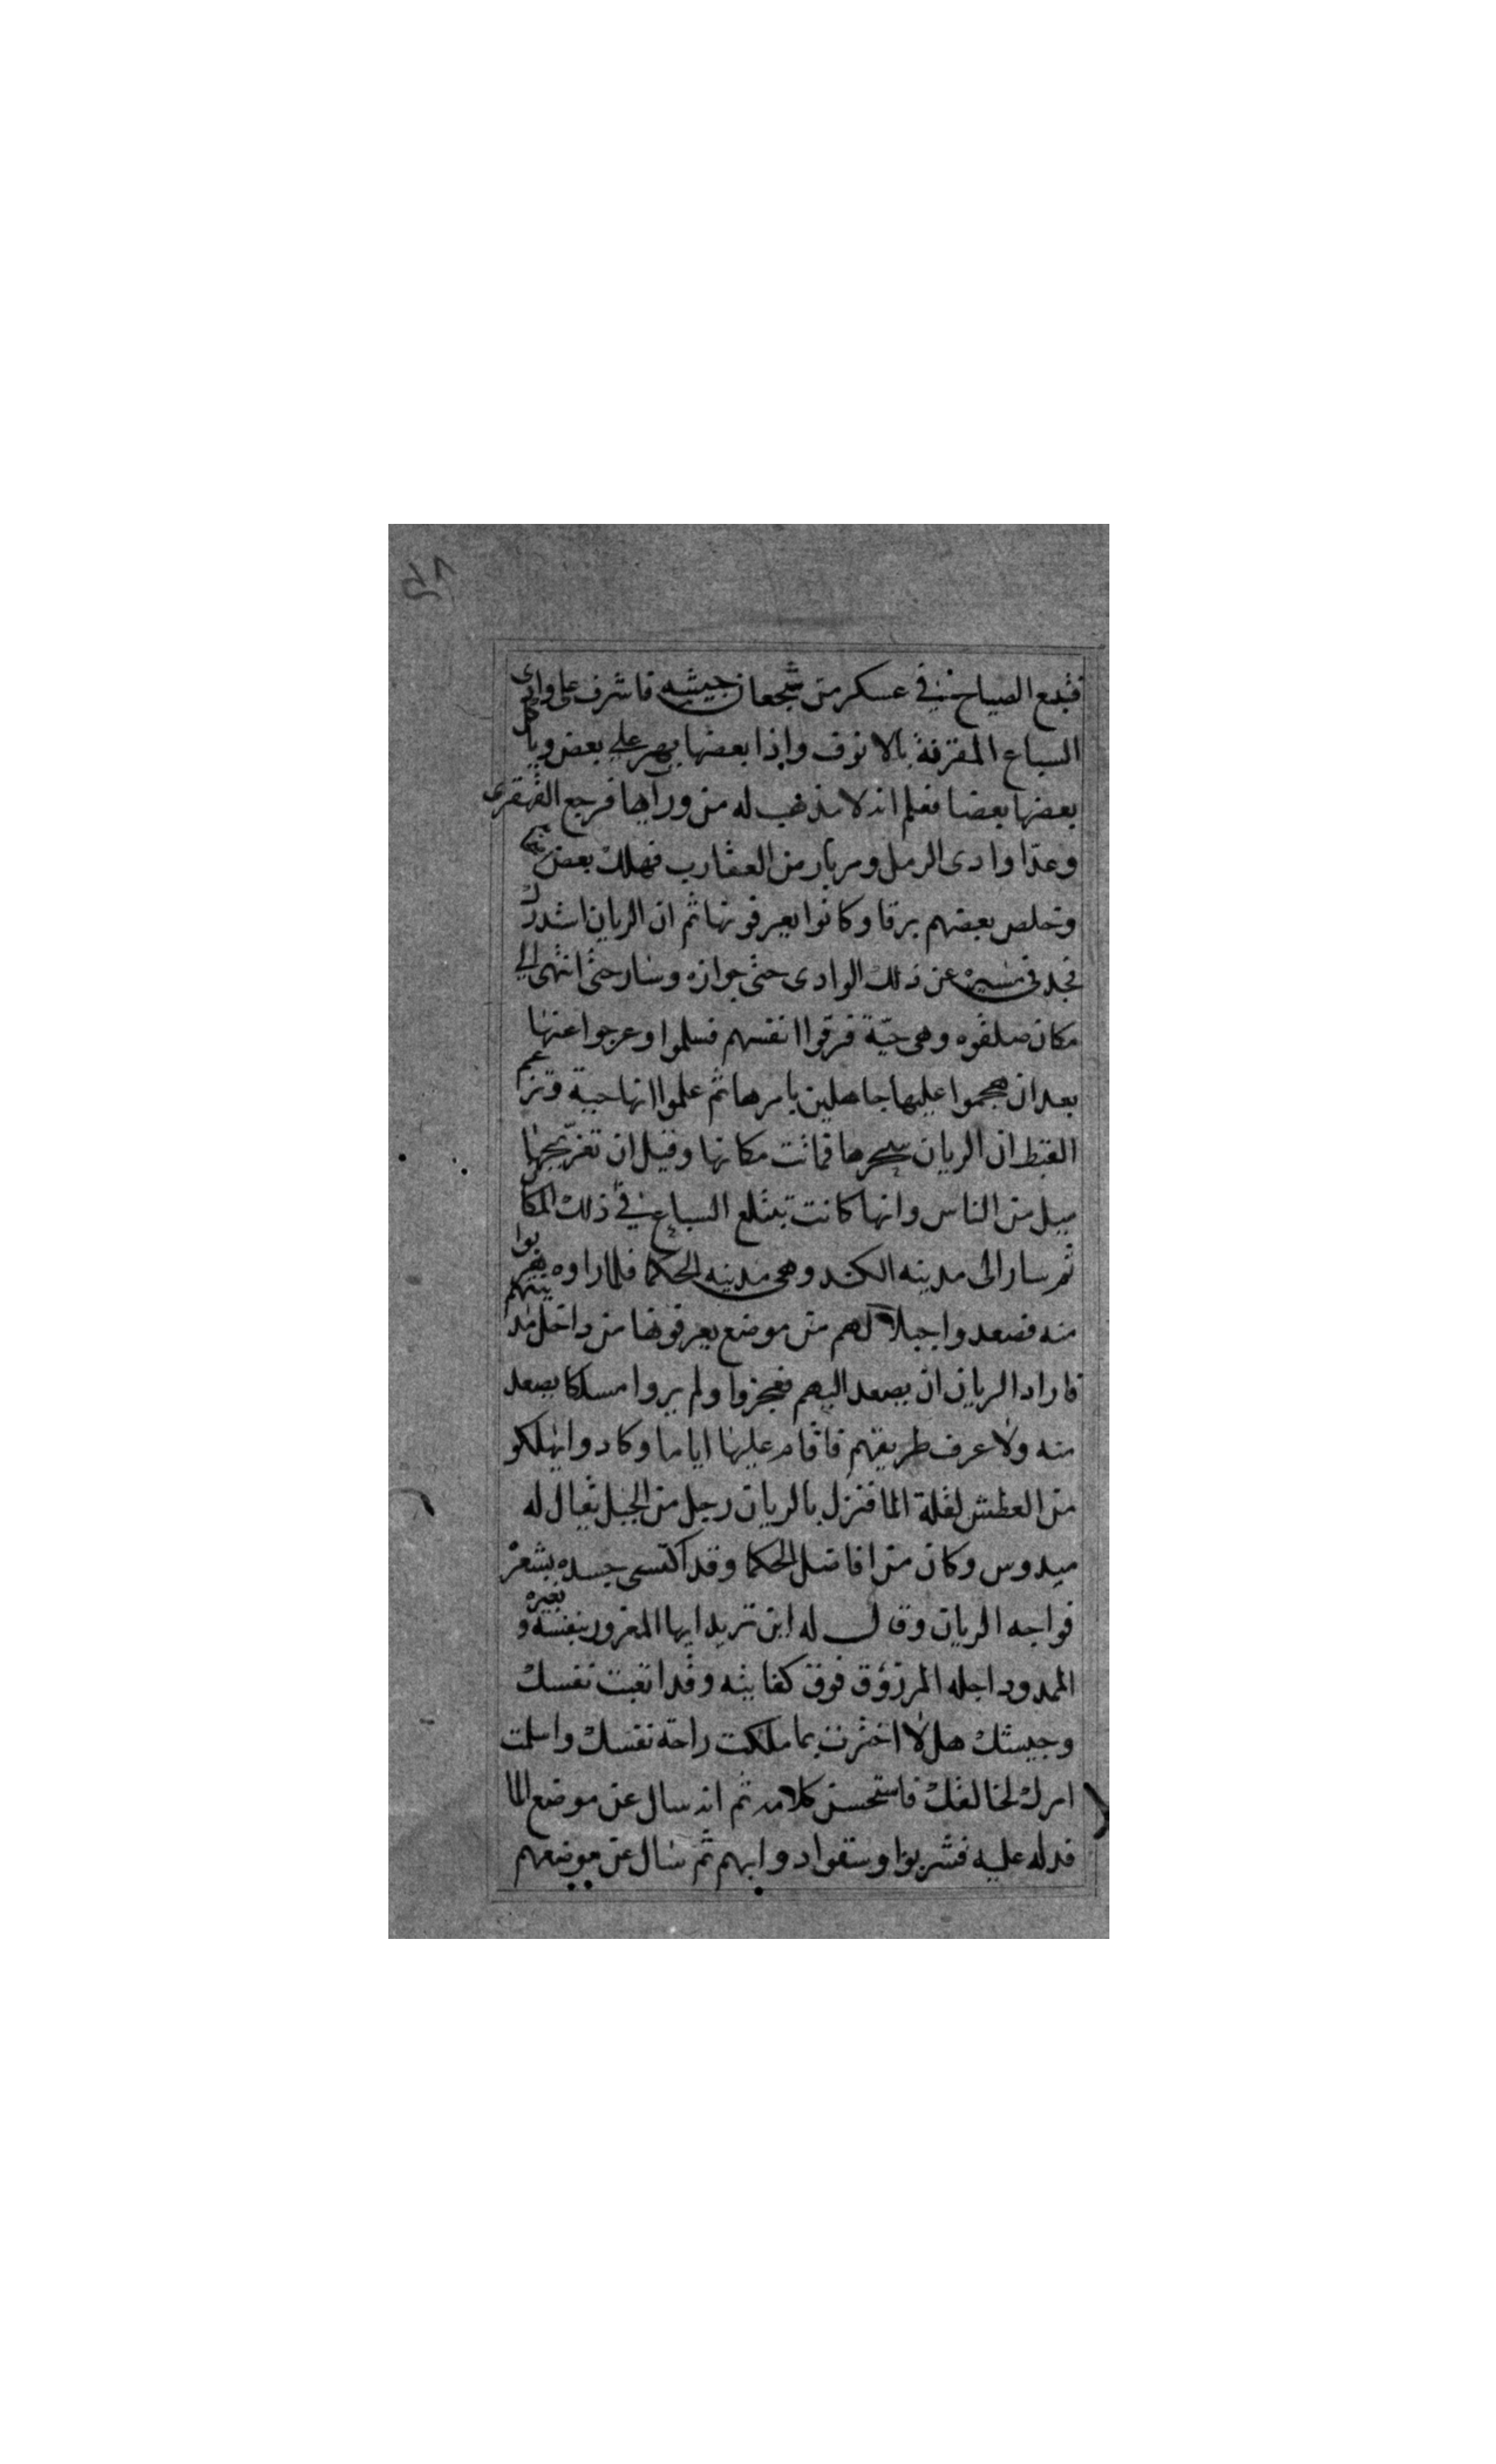 فتبع الصياح في عسكر من شجعان جيشه فاشرف على وادى
السباع المقرنة بالانوف واذا بعضها يهر على بعض وياكل
بعضها بعضا فعلم انه لا مذهب له من وراها فرجع القهقرى
وعدا وادى الرمل ومر بارض العقارب فهلك بعض
وتخلص بعضهم برقا وكانوا يعرفونها ثم ان الريان
فجد فى مسيره عن ذلك الوادى حتى جوازه وسار حتى انتهى الى
مكان صلفوه وهى حية فرقوا انفسهم فسلموا وعرجوا عنها
بعد ان هجموا عليها جاهلين بامرها ثم علموا انها حية وتزعم
القبط ان الريان سحرها فماتت مكانها وقيل ان
ميل من الناس وانها كانت تبتلع السباع في ذلك المكا
ثم سار الى مدينه الكند وهى مدينه الحكما فلما راوه هربوا
منه فصعدوا جبلا لهم من موضع يعرفونها من داخل مدينتهم
فاراد الريان ان يصعد اليهم فعجزوا ولم يروا مسلكا يصعد
منه ولا عرف طريقهم فاقام عليها اياما وكادوا يهلكو
من العطش لقلة الما فنزل بالريان رجل من الجبل يقال له
ميدوس وكان من افاضل الحكما وقد اكتسى جسده بشعر
فواجه الريان وقال له اين تريد ايها المغرور بنفسه وبغيره
الممدود اجله المرزوق فوق كفايته وقد اتعبت نفسك
وجيشك هلا اخترت بما ملكت راحة نفسك واسلمت
امرك لخالقك فاستحسن كلامه ثم انه سال عن موضع الما
فدله عليه فشربوا وسقوا دوابهم ثم سال عن موضعهم